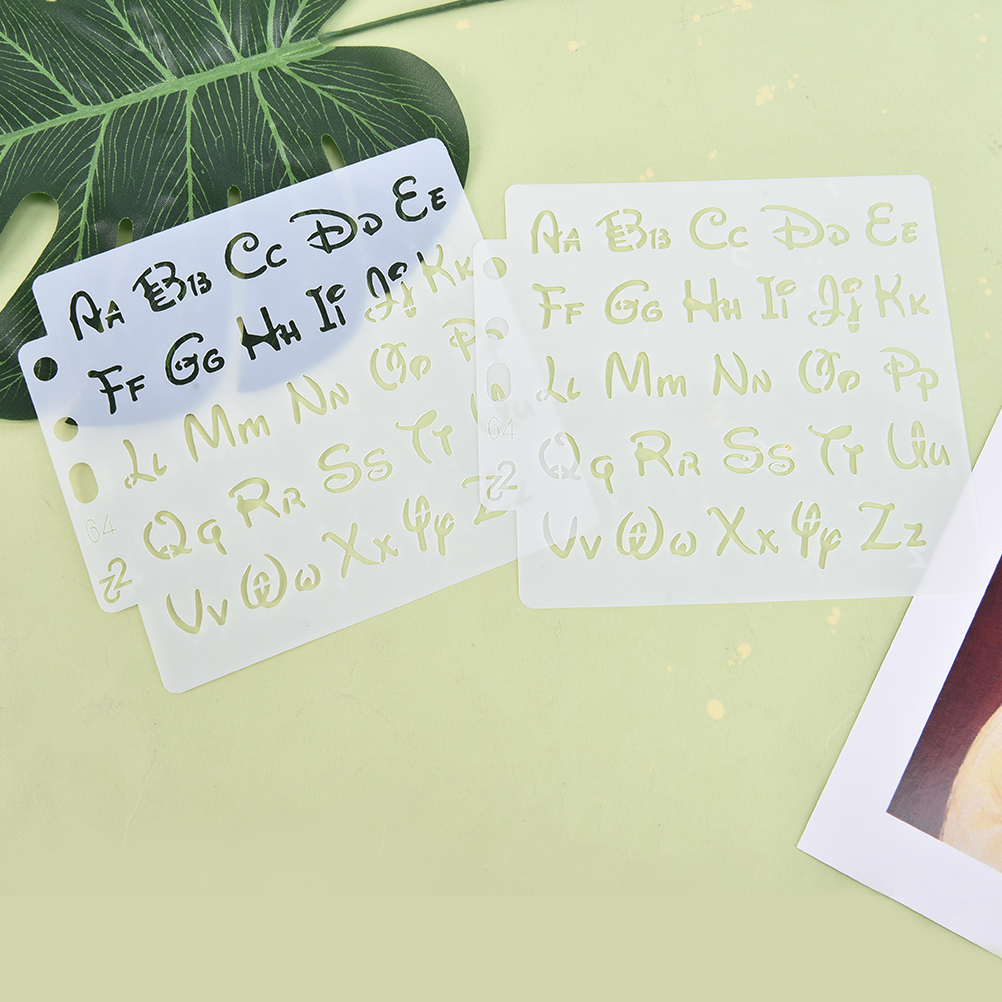 Aa Bb Cc Dd Ee
Ff Gg Hh Ii Jj Kk
Ll Mm Nn Oo Pp
Qq Rr Ss Tt Uu
Vv Ww Xx Yy Zz
64
Aa Bb Cc Dd Ee
Ff Gg Hh Ii Jj Kk
Ll Mm Nn Oo Pp
64
Qq Rr Ss Tt Uu
Vv Ww Xx Yy Zz